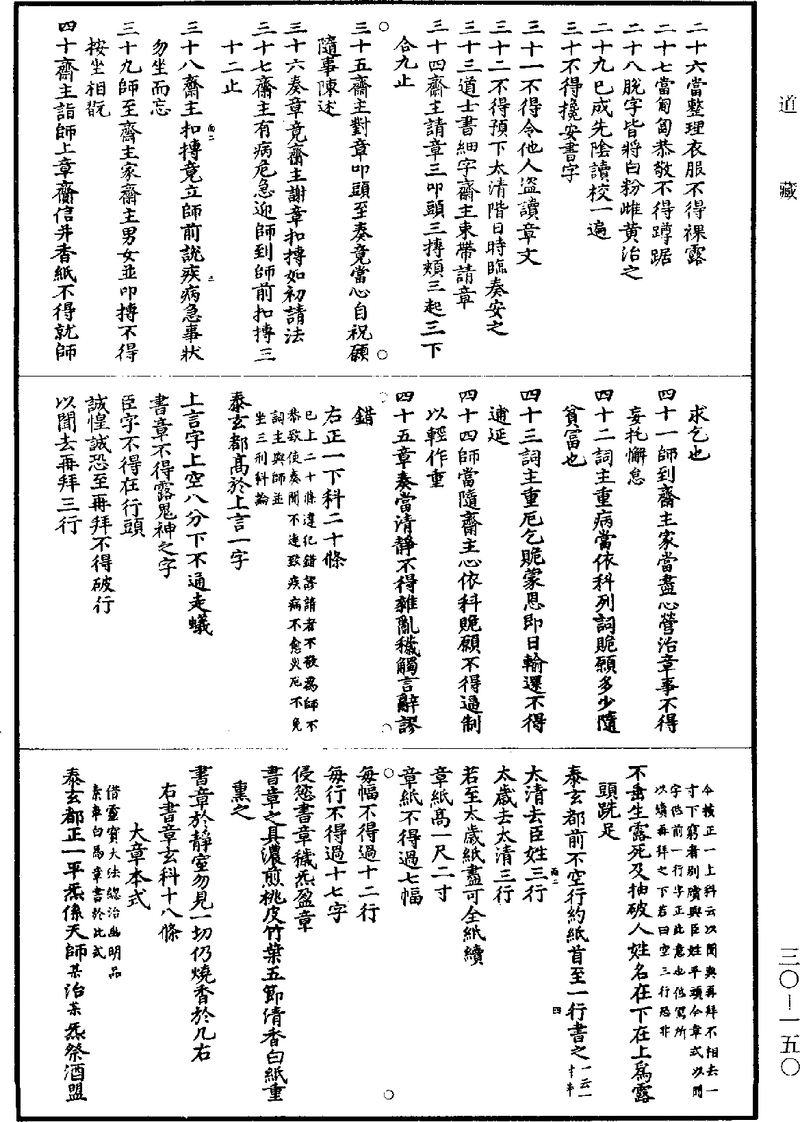 道藏
二十六當整理衣服不得裸露
二十七當匍匐恭敬不得蹲踞
二十八脫字皆將白粉雌黃治之
二十九已成先陰讀校一遍
三十不得攙安書字
三十一不得令他人盜讀章文
三十二不得預下太清階日時臨奏安之
三十三道士書細字齋主束帶請章
三十四齋主請章三叩頭三摶頰三起三下
合九止
三十五齋主對章叩頭至奏竟當心自祝願
隨事陳述
三十六奏章竟齋主謝章扣摶如初請法
三十七齋主有病危急迎師到師前扣摶三
十二止
三十八齋主扣摶竟立師前說疾病急事狀
勿坐而忘
三十九師至齋主家齋主男女並叩摶不得
按坐相翫
四十齋主詣師上章齎信并香紙不得就師
求乞也
四十一師到齋主家當盡心營治章事不得
妄托懈怠
四十二詞主重病當依科列詞賧願多少隨
貧富也
四十三詞主重厄乞賧蒙恩即日輸還不得
逋延
四十四師當隨齋主心依科賧願不得過制
以輕作重
四十五章奏當清靜不得雜亂穢觸言辭謬
錯
右正一下科二十條
已上二十條違犯錯謬請者不敬爲師不
恭致使奏聞不達致疾病不愈災厄不免
詞主與師並
坐三刑糾論
泰玄都高於上言一字
上言字上空八分下不通走蟻
書章不得露鬼神之字
臣字不得在行頭
誠惶誠恐至再拜不得破行
以聞去再拜三行
今按正一上科云以聞與再拜不相去一
寸下窮者別牘與臣姓平頭今章式以聞
字佔前一行字正此意也佔寫所
以續再拜之下若曰空三行恐非
不書生露死及抽破人姓名在下在上爲露
頭跣足
泰玄都前不空行約紙首至一行書之一云一寸半
太清去臣姓三行
太歲去太清三行
若至太歲紙盡可全紙續
章紙高一尺二寸
章紙不得過七幅
每幅不得過十二行
每行不得過十七字
侵慾書章穢炁盈章
書章之具濃煎桃皮竹葉五節清香白紙重
熏之
書章於靜室勿見一切仍燒香於几右
右書章玄科十八條
大章本式
借靈寶大法總治幽明品
素車白馬章書於此式
泰玄都正一平炁係天師某治某炁祭酒盟
三〇—一五〇